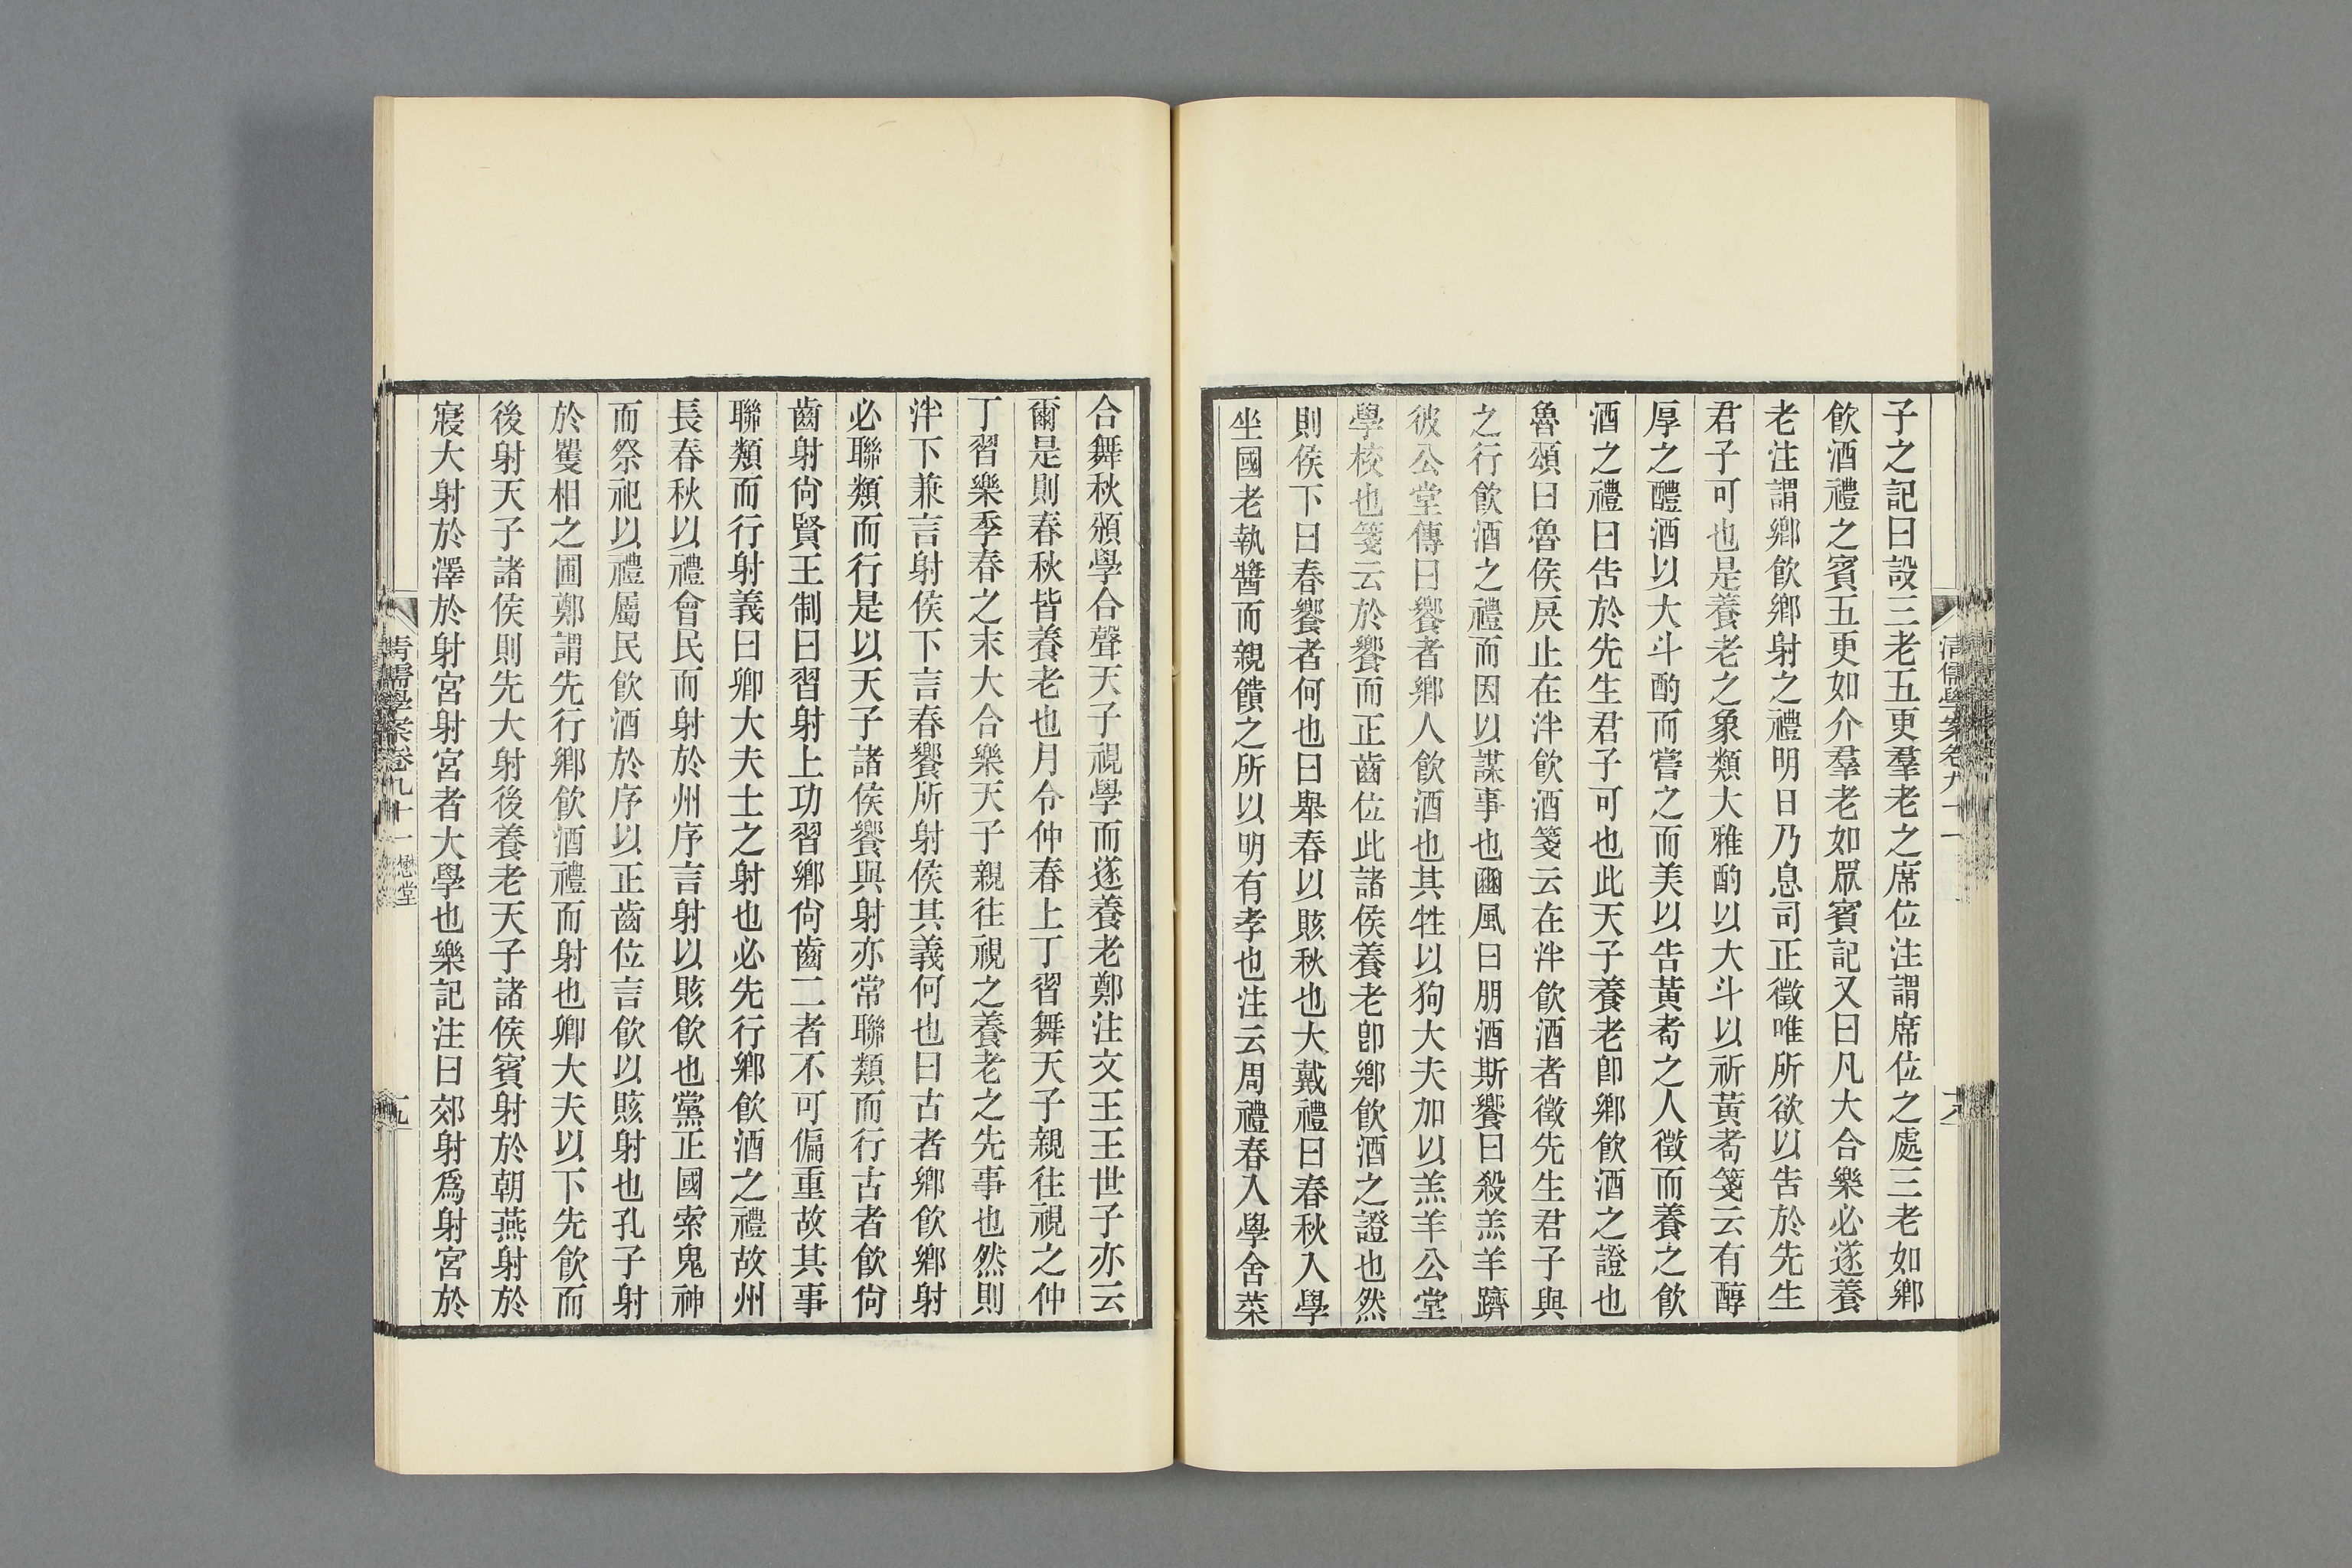 子之記曰設三老五更羣老之席位注謂席位之處三老如鄉
飮酒禮之賓五更如介羣老如眾賓記又曰凡大合樂必遂養
老注謂鄉飮鄉射之禮明日乃息司正徵唯所欲以告於先生
君子可也是養老之象類大雅酌以大斗以祈黃耇箋云有醇
厚之醴酒以大斗酌而嘗之而美以告黃耇之人徵而養之飮
酒之禮曰告於先生君子可也此天子養老卽鄉飮酒之證也
魯頌曰魯侯戾止在泮飮酒箋云在泮飮酒者徵先生君子與
之行飮酒之禮而因以謀事也豳風曰朋酒斯饗曰殺羔羊躋
彼公堂傳曰饗者鄉人飮酒也其牲以狗大夫加以羔羊公堂
學校也箋云於饗而正齒位此諸侯養老卽鄉飮酒之證也然
則侯下曰春饗者何也曰舉春以賅秋也大戴禮曰春秋入學
坐國老執醬而親饋之所以明有孝也注云周禮春入學舍菜
清儒學案卷九十一
合舞秋頒學合聲天子視學而遂養老鄭注文王世子亦云
爾是則春秋皆養老也月令仲春上丁習舞天子親往視之仲
丁習樂季春之末大合樂天子親往視之養老之先事也然則
泮下兼言射侯下言春饗所射侯其義何也曰古者鄉飮鄉射
必聯類而行是以天子諸侯饗與射亦常聯類而行古者飮尙
齒射尙賢王制曰習射上功習鄉尙齒二者不可偏重故其事
聯類而行射義曰卿大夫士之射也必先行鄉飮酒之禮故州
長春秋以禮會民而射於州序言射以賅飮也黨正國索鬼神
而祭祀以禮屬民飮酒於序以正齒位言飮以賅射也孔子射
於矍相之圃鄭謂先行鄉飮酒禮而射也卿大夫以下先飮而
後射天子諸侯則先大射後養老天子諸侯賓射於朝燕射於
寢大射於澤於射宮射宮者大學也樂記注曰郊射爲射宮於
清儒學案卷九十一 懋堂